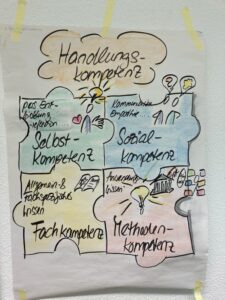 Handlungs-
kompetenz
Selbst-
kompetenz
Kommunikation
Empathie...
Sozial-
kompetenz
Allgemein- &
Fachspezifisches
Wissen
Fachkompetenz
Anwendungs-
wissen
Methoden-
kompetenz